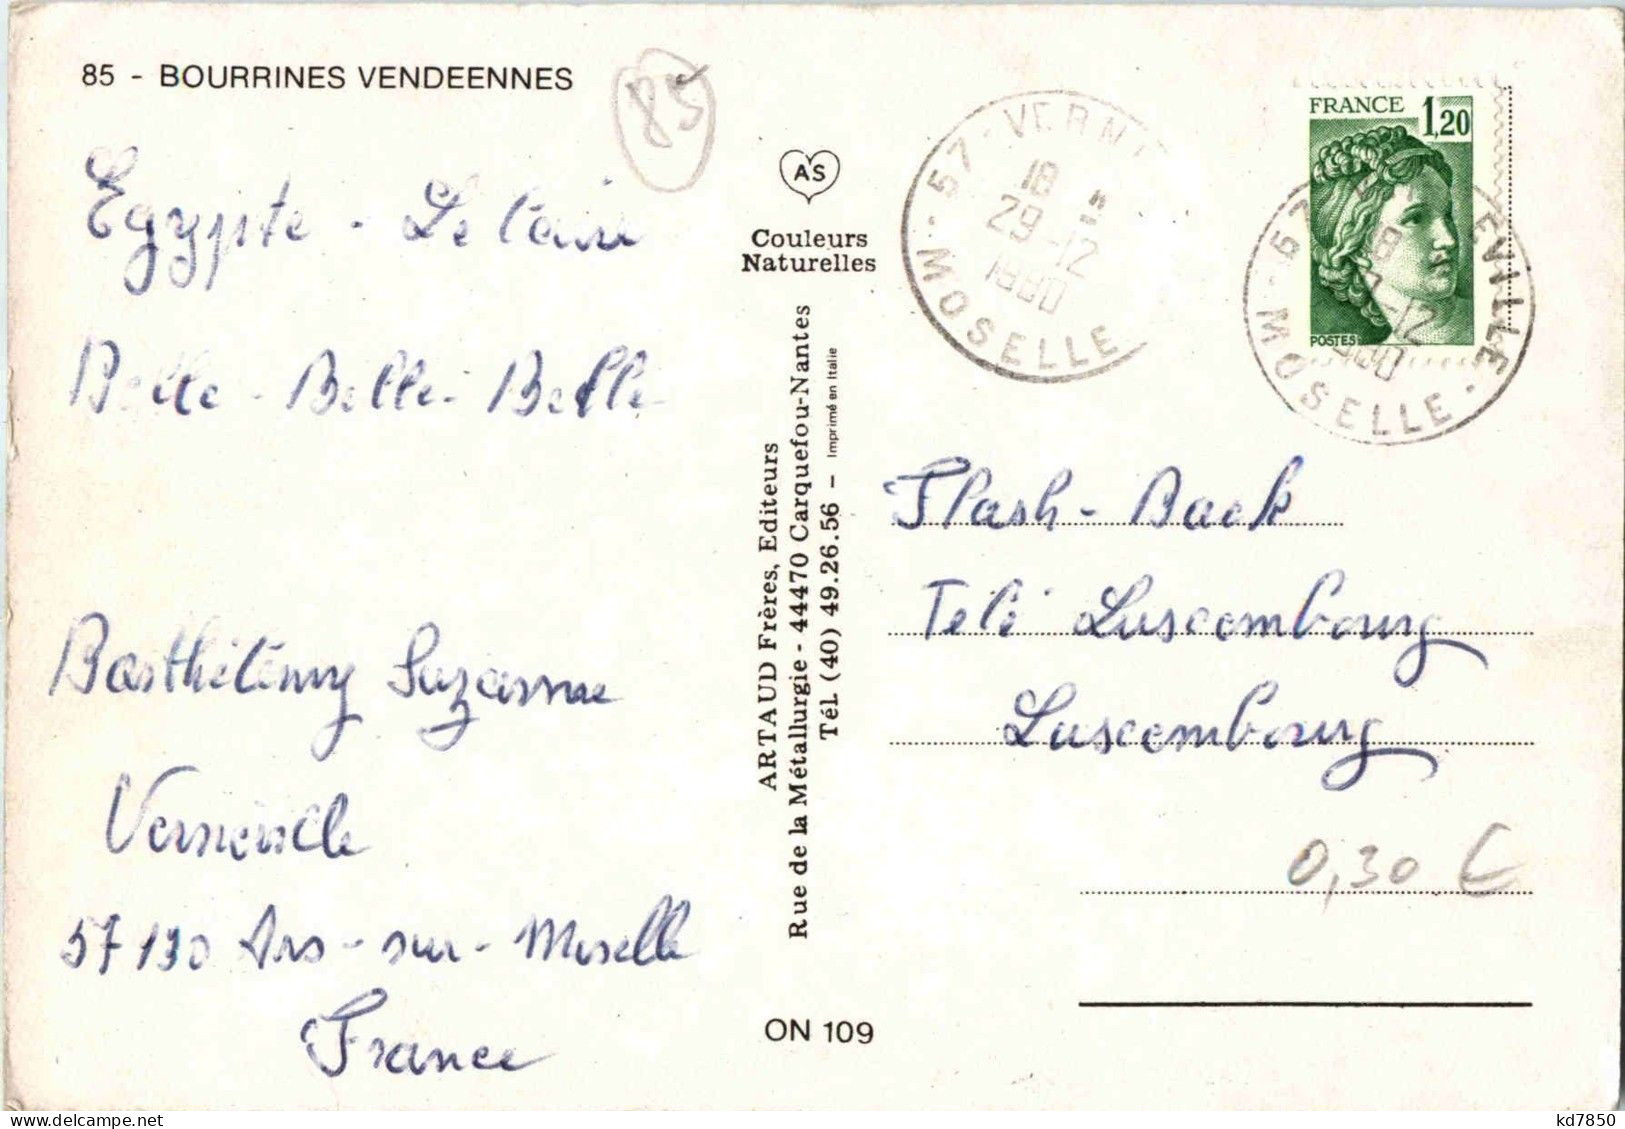 85 - BOURRINES VENDEENNES
85
Egypte - Le Caire
Belle - Belle - Belle
Barthélémy Suzanne
Vernéville
57130 Ars-sur-Moselle
France
AS
Couleurs
Naturelles
ARTAUD Frères, Editeurs
Rue de la Métallurgie - 44470 Carquefou-Nantes
Tél. (40) 49.26.56 - Imprimé en Italie
ON 109
57 - VERN
18 H
29-12
1980
MOSELLE
FRANCE 1,20
POSTES
EVILLE
18
-12
1980
MOSELLE
Flash-Back
Télé Luxembourg
Luxembourg
0,30 €
kd7850